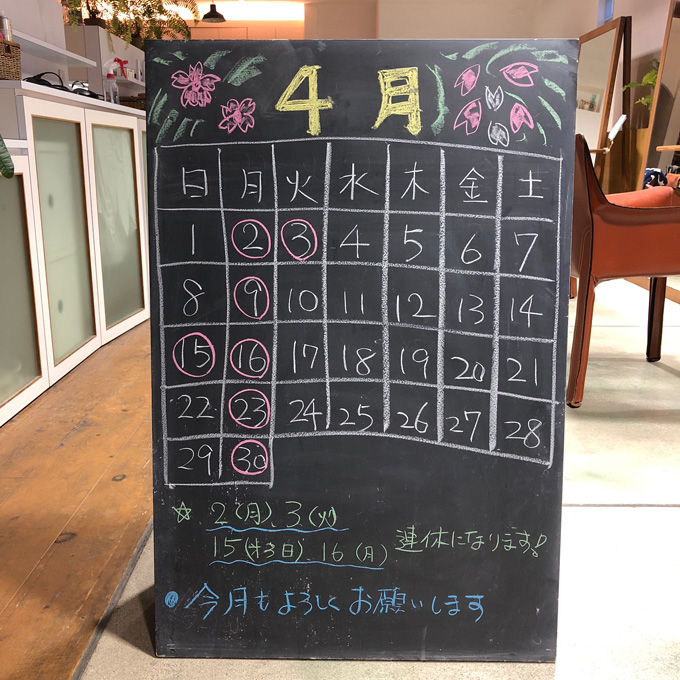 4月
日 月 火 水 木 金 土
1 2 3 4 5 6 7
8 9 10 11 12 13 14
15 16 17 18 19 20 21
22 23 24 25 26 27 28
29 30
☆ 2(月)、3(火)
15(第3日)、16(月) 連休になります!
今月もよろしくお願いします